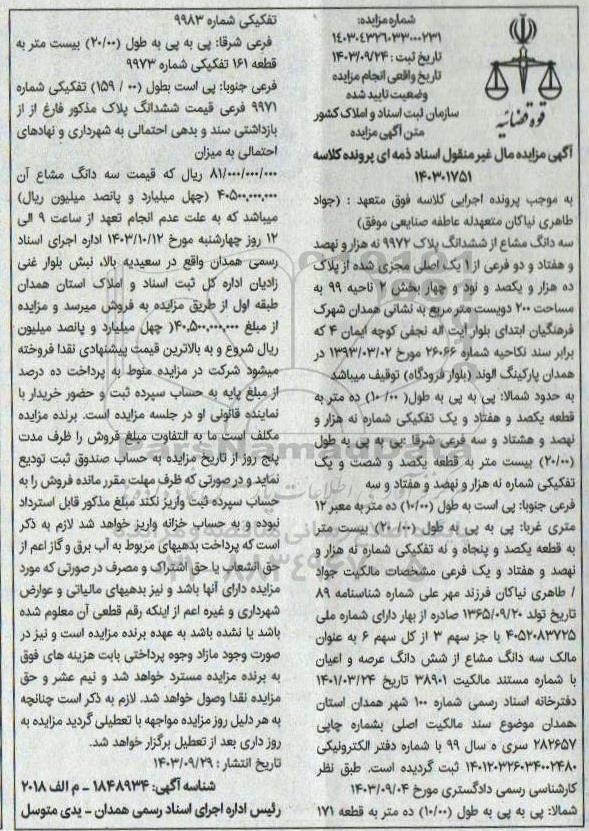 شماره مزایده:
۱۴۰۳۰۴۳۲۶۰۳۳۰۰۰۲۳۱
تاریخ ثبت: ۱۴۰۳/۰۹/۲۴
تاریخ واقعی انجام مزایده
وضعیت تایید شده
سازمان ثبت اسناد و املاک کشور
متن آگهی مزایده
قوه قضائیه
آگهی مزایده مال غیر منقول اسناد ذمه ای پرونده کلاسه
۱۴۰۳۰۱۷۵۱
به موجب پرونده اجرایی کلاسه فوق متعهد : (جواد
طاهری نیاکان متعهدله عاطفه صنایعی موفق)
سه دانگ مشاع از ششدانگ پلاک ۹۹۷۲ نه هزار و نهصد
و هفتاد و دو فرعی از ۱ یک اصلی مجزی شده از پلاک
ده هزار و یکصد و نود و چهار بخش ۲ ناحیه ۹۹ به
مساحت ۲۰۰ دویست متر مربع به نشانی همدان شهرک
فرهنگیان ابتدای بلوار آیت اله نجفی کوچه ایمان ۴ که
برابر سند نکاحیه شماره ۲۶۰۶۶ مورخ ۱۳۹۳/۰۳/۰۲ در
همدان پارکینگ الوند (بلوار فرودگاه) توقیف میباشد
به حدود شمالا: پی به پی به طول( ۱۰/۰۰) ده متر به
قطعه یکصد و هفتاد و یک تفکیکی شماره نه هزار و
نهصد و هشتاد و سه فرعی شرقا :پی به پی به طول
(۲۰/۰۰) بیست متر به قطعه یکصد و شصت و یک
تفکیکی شماره نه هزار و نهصد و هفتاد و سه
فرعی جنوبا: پی است به طول (۱۰/۰۰) ده متر به معبر ۱۲
متری غربا: پی به پی به طول (۲۰/۰۰) بیست متر
به قطعه یکصد و پنجاه و نه تفکیکی شماره نه هزار و
نهصد و هفتاد و یک فرعی مشخصات مالکیت جواد
/ طاهری نیاکان فرزند مهر علی شماره شناسنامه ۸۹
تاریخ تولد ۱۳۶۵/۰۹/۲۰ صادره از بهار دارای شماره ملی
۴۰۵۲۰۸۳۷۲۵ با جز سهم ۳ از کل سهم ۶ به عنوان
مالک سه دانگ مشاع از شش دانگ عرصه و اعیان
با شماره مستند مالکیت ۳۸۹۰۱ تاریخ ۱۴۰۱/۰۳/۲۴
دفترخانه اسناد رسمی شماره ۱۰۰ شهر همدان استان
همدان موضوع سند مالکیت اصلی بشماره چاپی
۲۸۲۶۵۷ سری ه سال ۹۹ با شماره دفتر الکترونیکی
۱۴۰۱۲۰۳۲۶۰۳۴۰۰۲۴۸۰ ثبت گردیده است. طبق نظر
کارشناسی رسمی دادگستری مورخ ۱۴۰۳/۰۹/۰۴
شمالا: پی به پی به طول (۱۰/۰۰) ده متر به قطعه ۱۷۱
تفکیکی شماره ۹۹۸۳
فرعی شرقا: پی به پی به طول (۲۰/۰۰) بیست متر به
قطعه ۱۶۱ تفکیکی شماره ۹۹۷۳
فرعی جنوبا: پی است بطول (۰۰ / ۱۵۹) تفکیکی شماره
۹۹۷۱ فرعی قیمت ششدانگ پلاک مذکور فارغ از از
بازداشتی سند و بدهی احتمالی به شهرداری و نهادهای
احتمالی به میزان
۸۱/۰۰۰/۰۰۰/۰۰۰ ریال که قیمت سه دانگ مشاع آن
۴۰۵۰۰,۰۰۰,۰۰۰ (چهل میلیارد و پانصد میلیون ریال)
میباشد که به علت عدم انجام تعهد از ساعت ۹ الی
۱۲ روز چهارشنبه مورخ ۱۴۰۳/۱۰/۱۲ اداره اجرای اسناد
رسمی همدان واقع در سعیدیه بالا، نبش بلوار غنی
زادیان اداره کل ثبت اسناد و املاک استان همدان
طبقه اول از طریق مزایده به فروش میرسد و مزایده
از مبلغ ۴۰,۵۰۰,۰۰۰,۰۰۰( چهل میلیارد و پانصد میلیون
ریال شروع و به بالاترین قیمت پیشنهادی نقدا فروخته
میشود شرکت در مزایده منوط به پرداخت ده درصد
از مبلغ پایه به حساب سپرده ثبت و حضور خریدار یا
نماینده قانونی او در جلسه مزایده است. برنده مزایده
مکلف است ما به التفاوت مبلغ فروش را ظرف مدت
پنج روز از تاریخ مزایده به حساب صندوق ثبت تودیع
نماید و در صورتی که ظرف مهلت مقرر مانده فروش را به
حساب سپرده ثبت واریز نکند مبلغ مذکور قابل استرداد
نبوده و به حساب خزانه واریز خواهد شد لازم به ذکر
است که پرداخت بدهیهای مربوط به آب برق و گاز اعم از
حق انشعاب یا حق اشتراک و مصرف در صورتی که مورد
مزایده دارای آنها باشد و نیز بدهیهای مالیاتی و عوارض
شهرداری و غیره اعم از اینکه رقم قطعی آن معلوم شده
باشد یا نشده باشد به عهده برنده مزایده است و نیز در
صورت وجود مازاد وجوه پرداختی بابت هزینه های فوق
به برنده مزایده مسترد خواهد شد و نیم عشر و حق
مزایده نقدا وصول خواهد شد. لازم به ذکر است چنانچه
به هر دلیل روز مزایده مواجهه با تعطیلی گردید مزایده به
روز داری بعد از تعطیل برگزار خواهد شد.
تاریخ انتشار : ۱۴۰۳/۰۹/۲۹
شناسه آگهی: ۱۸۴۸۹۳۴ – م الف ۲۰۱۸
رئیس اداره اجرای اسناد رسمی همدان – یدی متوسل